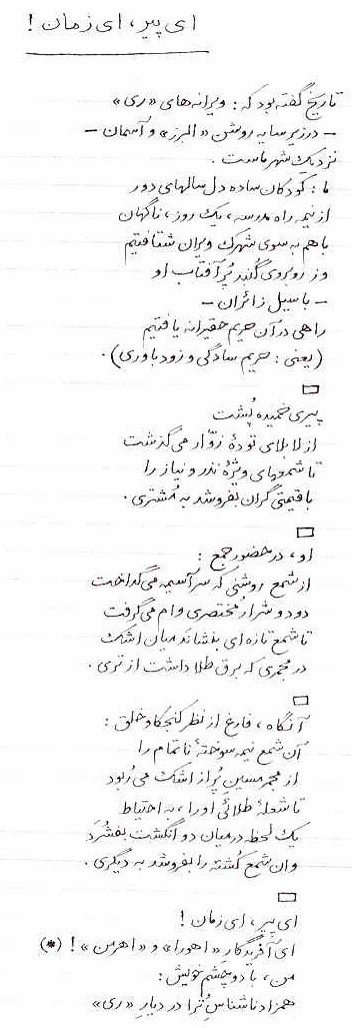 ای پیر، ای زمان!
تاریخ گفته بود که: ویرانه‌های «ری»
– در زیر سایه روشن «البرز» و آسمان –
نزدیک شهر ماست.
ما: کودکان ساده دل سالهای دور
از نیمه راه مدرسه، یک روز، ناگهان
با هم به سوی شهرک ویران شتافتیم
وز روبروی گنبد پُر آفتاب او
– با سیل زائران –
راهی در آن حریم حقیرانه یافتیم
(یعنی: حریم سادگی و زودباوری).
پیری خمیده پُشت
از لابلای تودهٔ زوّار می‌گذشت
تا شمعهای ویژهٔ نذر و نیاز را
با قیمتی گران بفروشد به مُشتری.
او، در حضور جمع:
از شمع روشنی که سراسیمه می‌گداخت
دود و شرار مختصری وام می‌گرفت
تا شمع تازه‌ای بنشاند میان اشک
در مجمری که برق طلا داشت از تری.
آنگاه، فارغ از نظر کنجکاو خلق:
آن شمع نیمه سوختهٔ ناتمام را
از مجمر مسینِ پُر از اشک می‌رُبود
تا شعلهٔ طلائی او را، به احتیاط
یک لحظه در میان دو انگشت بفشُرَد
وان شمع کُشته را بفروشد به دیگری.
ای پیر، ای زمان!
ای آفریدگار «اهورا» و «اهرمن»! (*)
من، با دو چشم خویش:
همزاد ناشناس تُرا در دیارِ «ری»